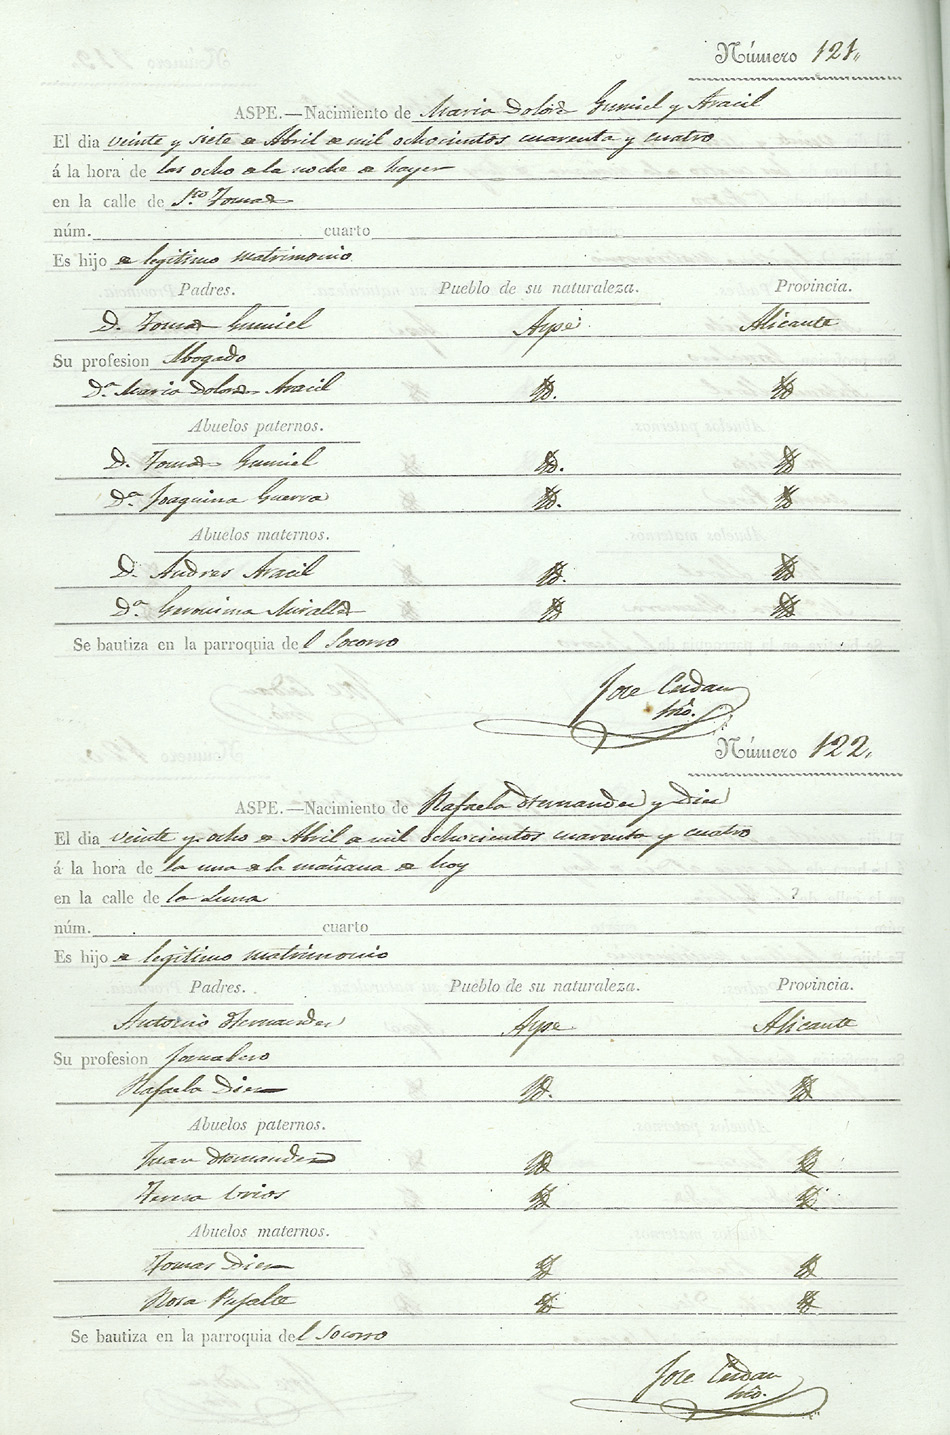 Número 121.
ASPE.—Nacimiento de Maria Dolores Gumiel y Aracil
El dia veinte y siete de Abril de mil ochocientos cuarenta y cuatro
á la hora de las ocho de la noche de hayer
en la calle de Sto. Tomas
núm. cuarto
Es hijo de legitimo matrimonio
Padres. Pueblo de su naturaleza. Provincia.
D. Tomas Gumiel Aspe Alicante
Su profesion Abogado
Da. Maria Dolores Aracil Yd. Yd
Abuelos paternos.
D. Tomas Gumiel Yd. Yd
Da. Joaquina Guerra Yd. Yd
Abuelos maternos.
D. Andres Aracil Yd. Yd
Da. Geronima Miralles Yd Yd
Se bautiza en la parroquia del Socorro
Jose Cerdan
Número 122.
ASPE.—Nacimiento de Rafaela Hernandez y Diez
El dia veinte y ocho de Abril de mil ochocientos cuarenta y cuatro
á la hora de la una de la mañana de hoy
en la calle de la Luna
núm. cuarto
Es hijo de legitimo matrimonio
Padres. Pueblo de su naturaleza. Provincia.
Antonio Hernandez Aspe Alicante
Su profesion Jornalero
Rafaela Diez Yd. Yd
Abuelos paternos.
Juan Hernandez Yd Yd
Teresa Urios Yd Yd
Abuelos maternos.
Tomas Diez Yd Yd
Rosa Pujalte Yd Yd
Se bautiza en la parroquia del Socorro
Jose Cerdan